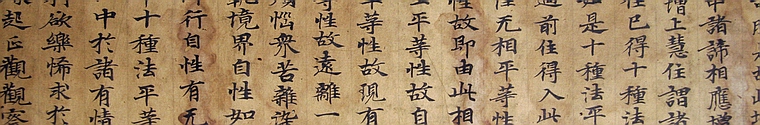 中諸諦相應增
增上慧住謂諸
住已得十種法
如是十種法平
過前住得入此
性无相平等性
性故即由此相
平等性故自
平等性故現有
等性故遠離一
惱衆苦雜染
執境界自性如
行自性有无
十種法平等
中於諸有情
欲樂悕求於
起正觀觀察